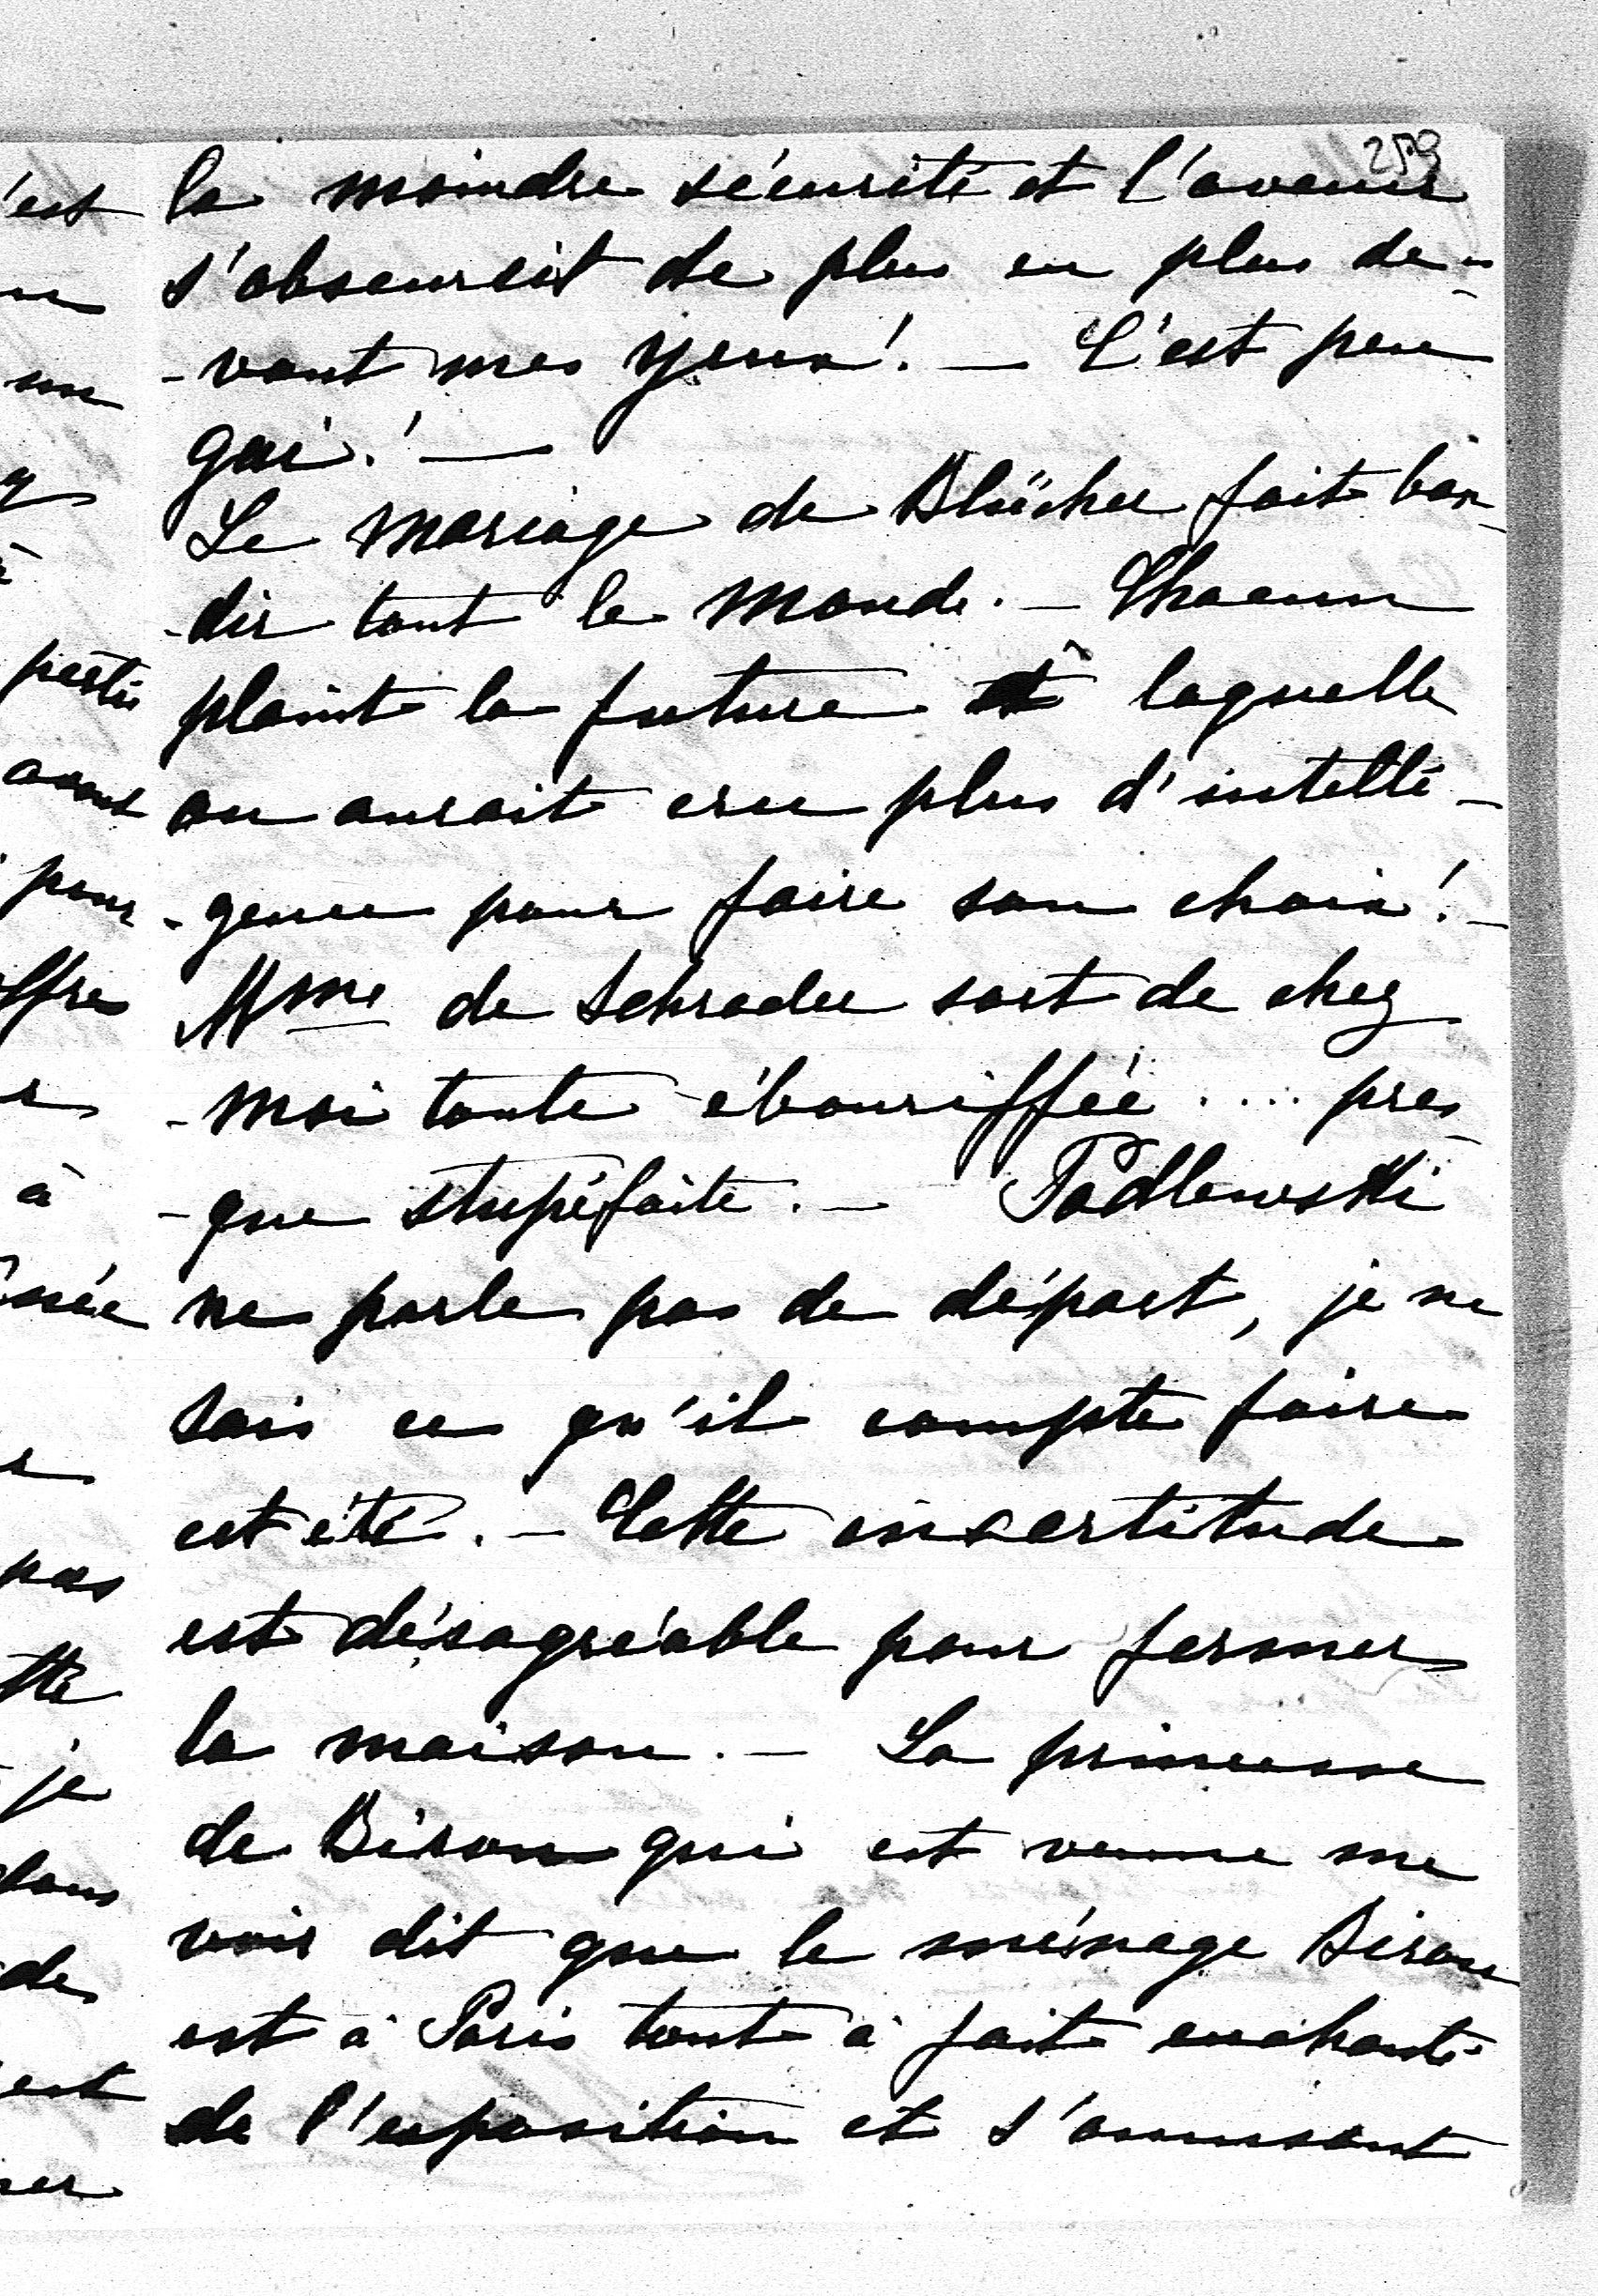 259
la moindre sécurité et l'avenir
s'obscurcit de plus en plus de-
-vant mes yeux! — C'est peu
gai! —
Le mariage de Blücher fait bon-
-dir tout le monde. — Chacun
plaint la future à laquelle
on aurait cru plus d'intelli-
-gence pour faire son choix! —
Mme de Schrader sort de chez
-moi toute ébouriffée .... pres
-que stupéfaite. — Padlewski
ne parle pas de départ, je ne
sais ce qu'il compte faire
cet été. — Cette incertitude
est désagréable pour fermer
la maison. — La princesse
de Biron qui est venue me
voir dit que le ménage Biron
est à Paris tout à fait enchanté
de l'exposition et s'amusant